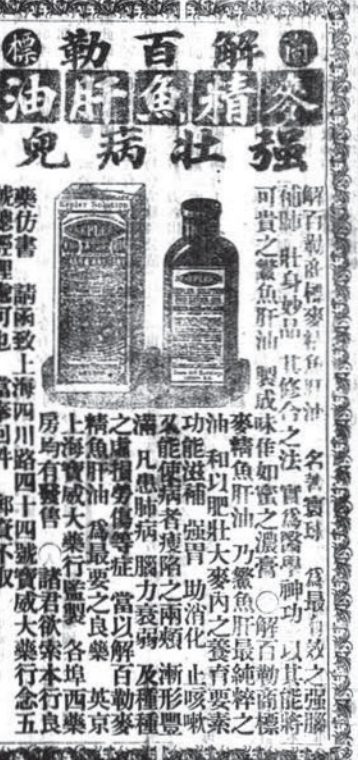 商 解百勒 標
麥精魚肝油
强壯病兒
Kepler Solution
KEPLER
KEPLER
解百勒商標麥精魚肝油 名著寰球 爲最有效之强腦
補肺 壯身妙品 其修合之法 實爲醫學神功 以其能將
可貴之鱉魚肝油 製成味作如蜜之濃膏 〇解百勒商標
麥精魚肝油 乃鱉魚肝最純粹之
油 和以肥壯大麥內之養育要素
功能滋補 强胃 助消化 止咳嗽
又能使病者瘦陷之兩頰 漸形豐
滿 凡患肺病 腦力衰弱 及種種
之虛損勞傷等症 當以解百勒麥
精魚肝油 爲最要之良藥 英京
上海寶威大藥行監製 各埠西藥
房均有發售 〇諸君欲索本行良
藥仿書 請函致上海四川路四十四號寶威大藥行念五
號總經理處可也 當奉回件 郵資不取